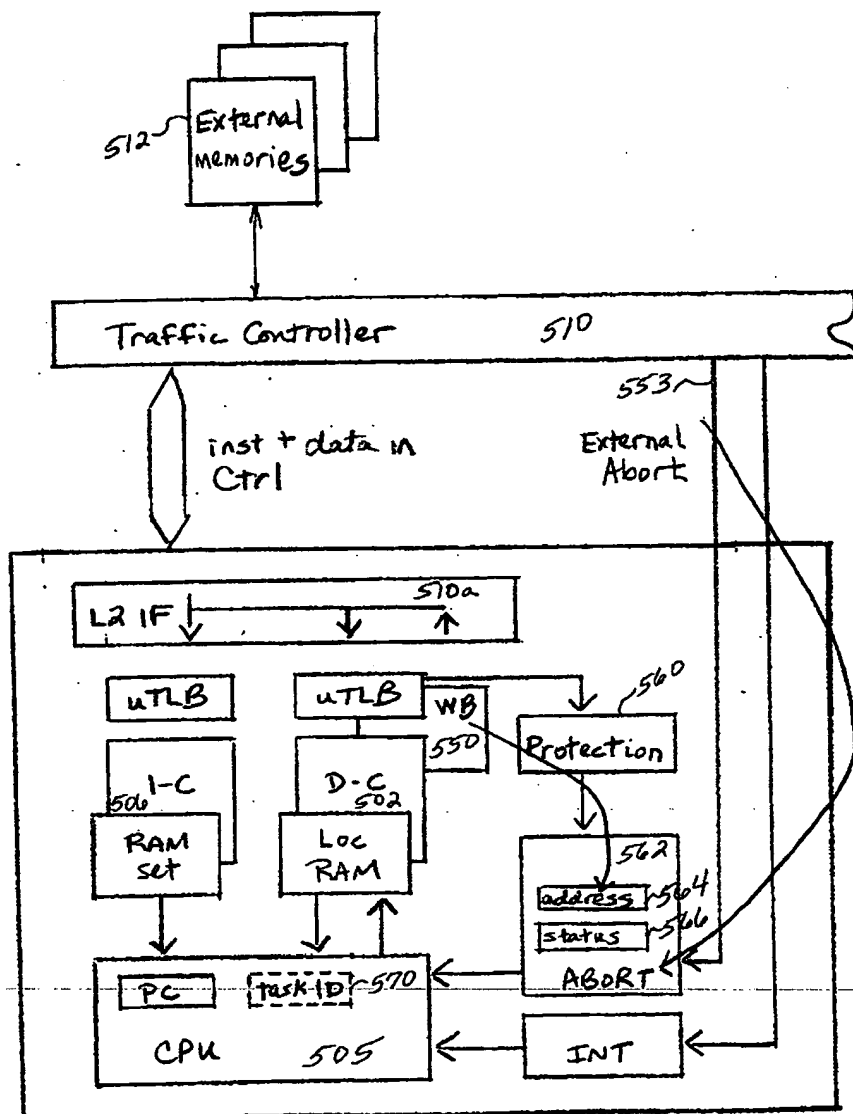 External
memories
512
Traffic Controller
510
553
inst + data in
Ctrl
External
Abort
L2 IF
510a
uTLB
uTLB
WB
550
560
Protection
I-C
506
RAM
set
D-C
502
Loc
RAM
562
address
564
status
566
ABORT
PC
task ID
570
CPU
505
INT